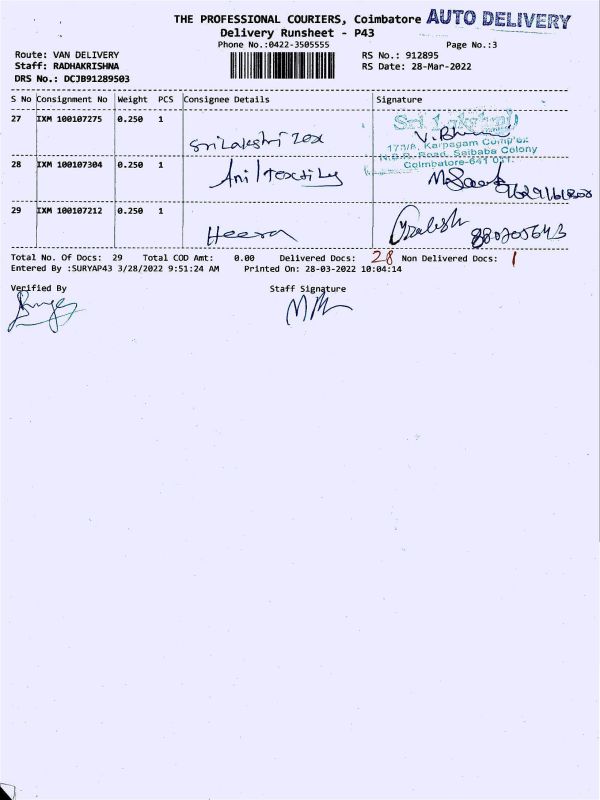 THE PROFESSIONAL COURIERS, Coimbatore AUTO DELIVERY
Delivery Runsheet - P43
Phone No.:0422-3505555 Page No.:3
Route: VAN DELIVERY RS No.: 912895
Staff: RADHAKRISHNA RS Date: 28-Mar-2022
DRS No.: DCJB91289503
S No Consignment No Weight PCS Consignee Details Signature
27 IXM 100107275 0.250 1
Sri Lakshmi
173/A, Karpagam Complex
N.S.R. Road, Saibaba Colony
Coimbatore-641 011
28 IXM 100107304 0.250 1
Anil
29 IXM 100107212 0.250 1
Heera
Total No. Of Docs: 29 Total COD Amt: 0.00 Delivered Docs: 28 Non Delivered Docs: 1
Entered By :SURYAP43 3/28/2022 9:51:24 AM Printed On: 28-03-2022 10:04:14
Verified By Staff Signature